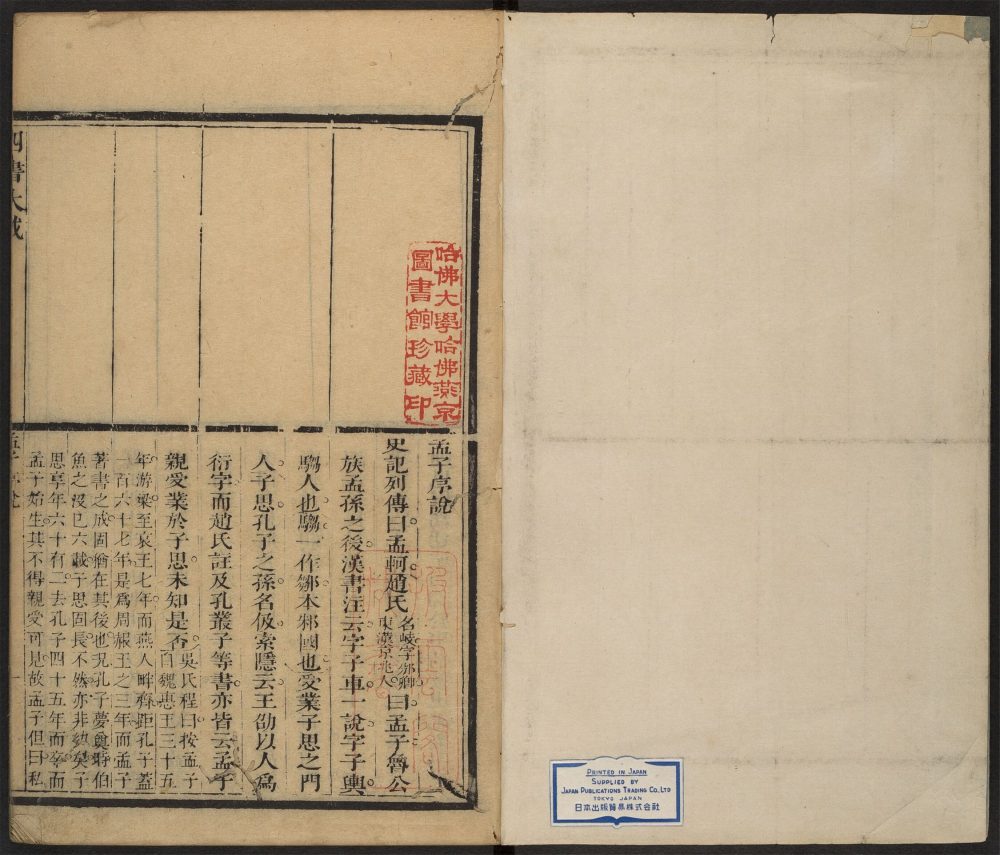 PRINTED IN JAPAN
SUPPLIED BY
JAPAN PUBLICATIONS TRADING CO., LTD
TOKYO JAPAN
日本出版貿易株式会社
哈佛大學哈佛燕京
圖書館珍藏印
孟子序說
史記列傳曰孟軻趙氏名岐字邠卿東漢京兆人曰孟子魯公
族孟孫之後漢書注云字子車一說字子輿
騶人也騶一作鄒本邾國也受業子思之門
人子思孔子之孫名伋索隱云王劭以人爲
衍字而趙氏註及孔叢子等書亦皆云孟子
親受業於子思未知是否吳氏程曰按孟子自魏惠王三十五
年游梁至哀王七年而燕人畔齊距孔子蓋
一百六十七年是爲周赧王之三年而孟子
著書之成固猶在其後也況孔子夢奠時伯
魚之沒已六載子思固長不然亦非幼矣子
思享年六十有二去孔子四十五年而卒而
孟子始生其不得親受可見故孟子但曰私
四書大成
孟子序說
一